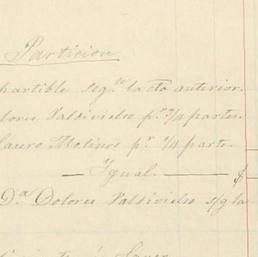 Particion
partible seg.ⁿ la cta anterior.
olores Valdivielso p.ʳ 3/4 partes.
Lauro Molinos p.ʳ 1/4 parte.
— Igual. — $
D.ª Dolores Valdivielso s/g la